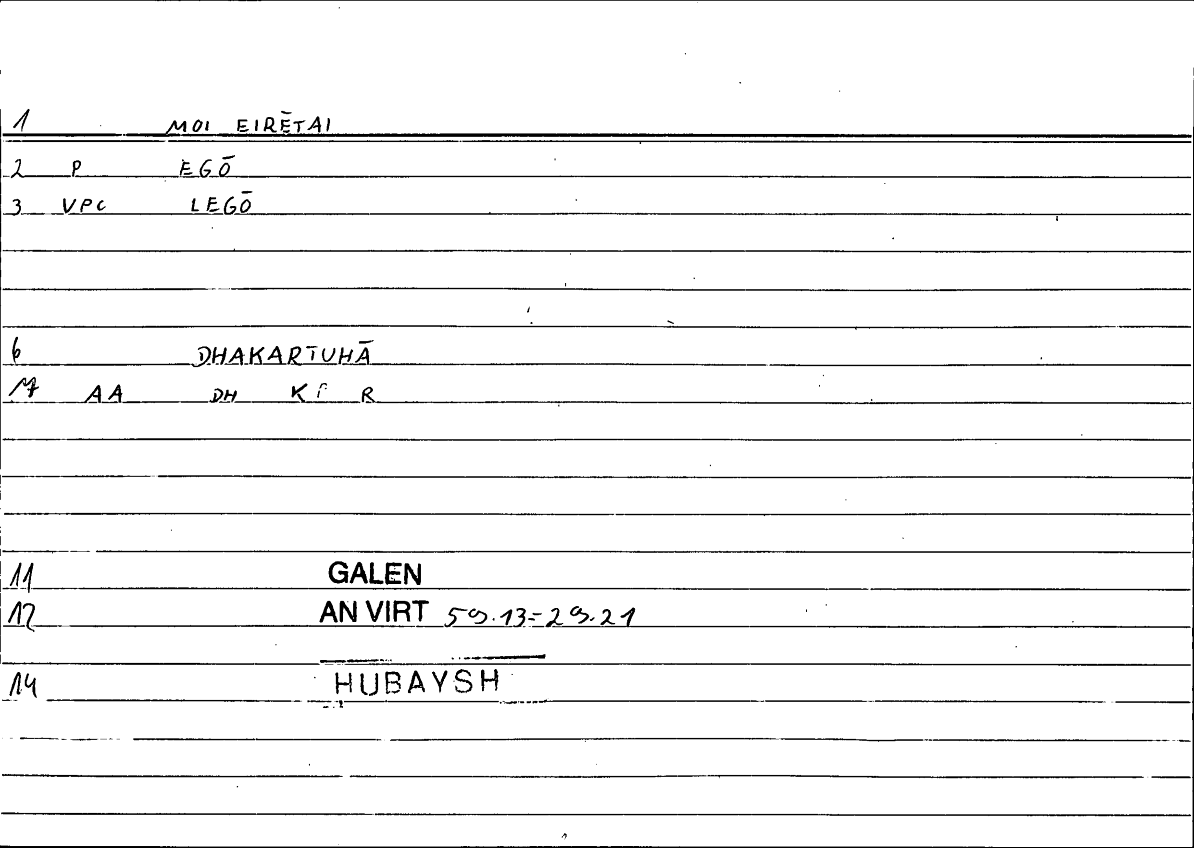 1 MOI EIRĒTAI
2 P EGŌ
3 VPC LEGŌ
6 DHAKARTUHĀ
17 AA DH K R
11 GALEN
12 AN VIRT 59.13=29.21
14 HUBAYSH